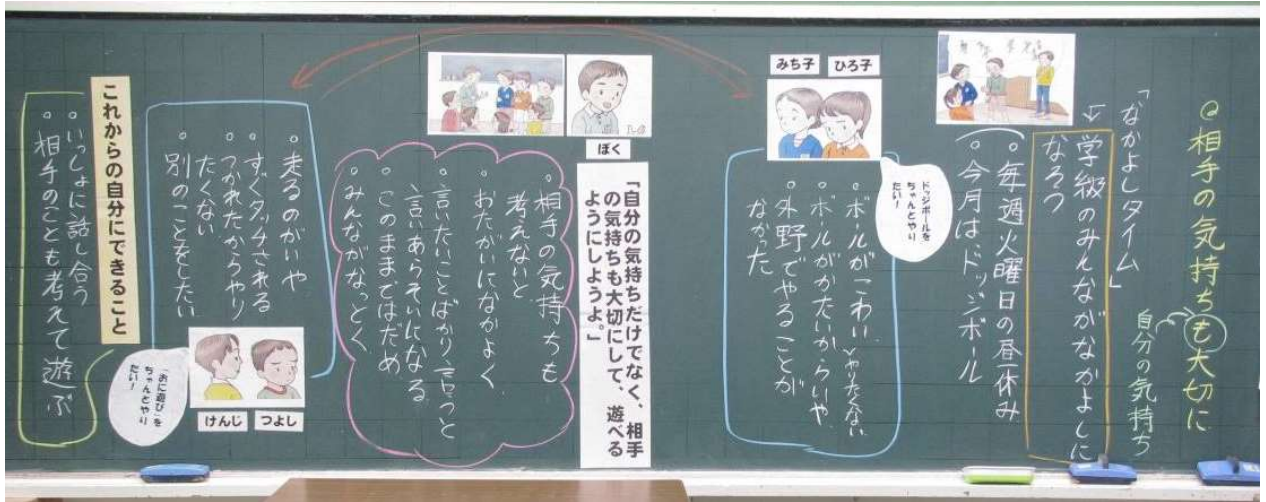 ◎相手の気持ちも大切に
自分の気持ち
「なかよしタイム」
↓学級のみんながなかよしに
なろう
○毎週火曜日の昼休み
○今月は、ドッジボール
みち子
ひろ子
ドッジボールを
ちゃんとやり
たい!
○ボールがこわい→やりたくない
○ボールがかたいからいや
○外野でやることが
なかった
ぼく
「自分の気持ちだけでなく、相手
の気持ちも大切にして、遊べる
ようにしようよ。」
○相手の気持ちも
考えないと
○おたがいになかよく
○言いたいことばかり言うと
言いあらそいになる
○このままではだめ
○みんながなっとく
○走るのがいや
○すぐタッチされる
○つかれたからやり
たくない
○別のことをしたい
つよし
けんじ
「おに遊び」を
ちゃんとやり
たい!
これからの自分にできること
○いっしょに話し合う
○相手のことも考えて遊ぶ